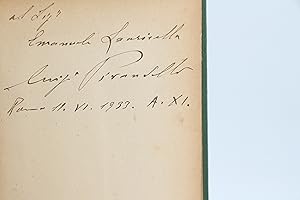 al Sig.r
Emanuele Lauricella
Luigi Pirandello
Roma 11. VI. 1933. A. XI.